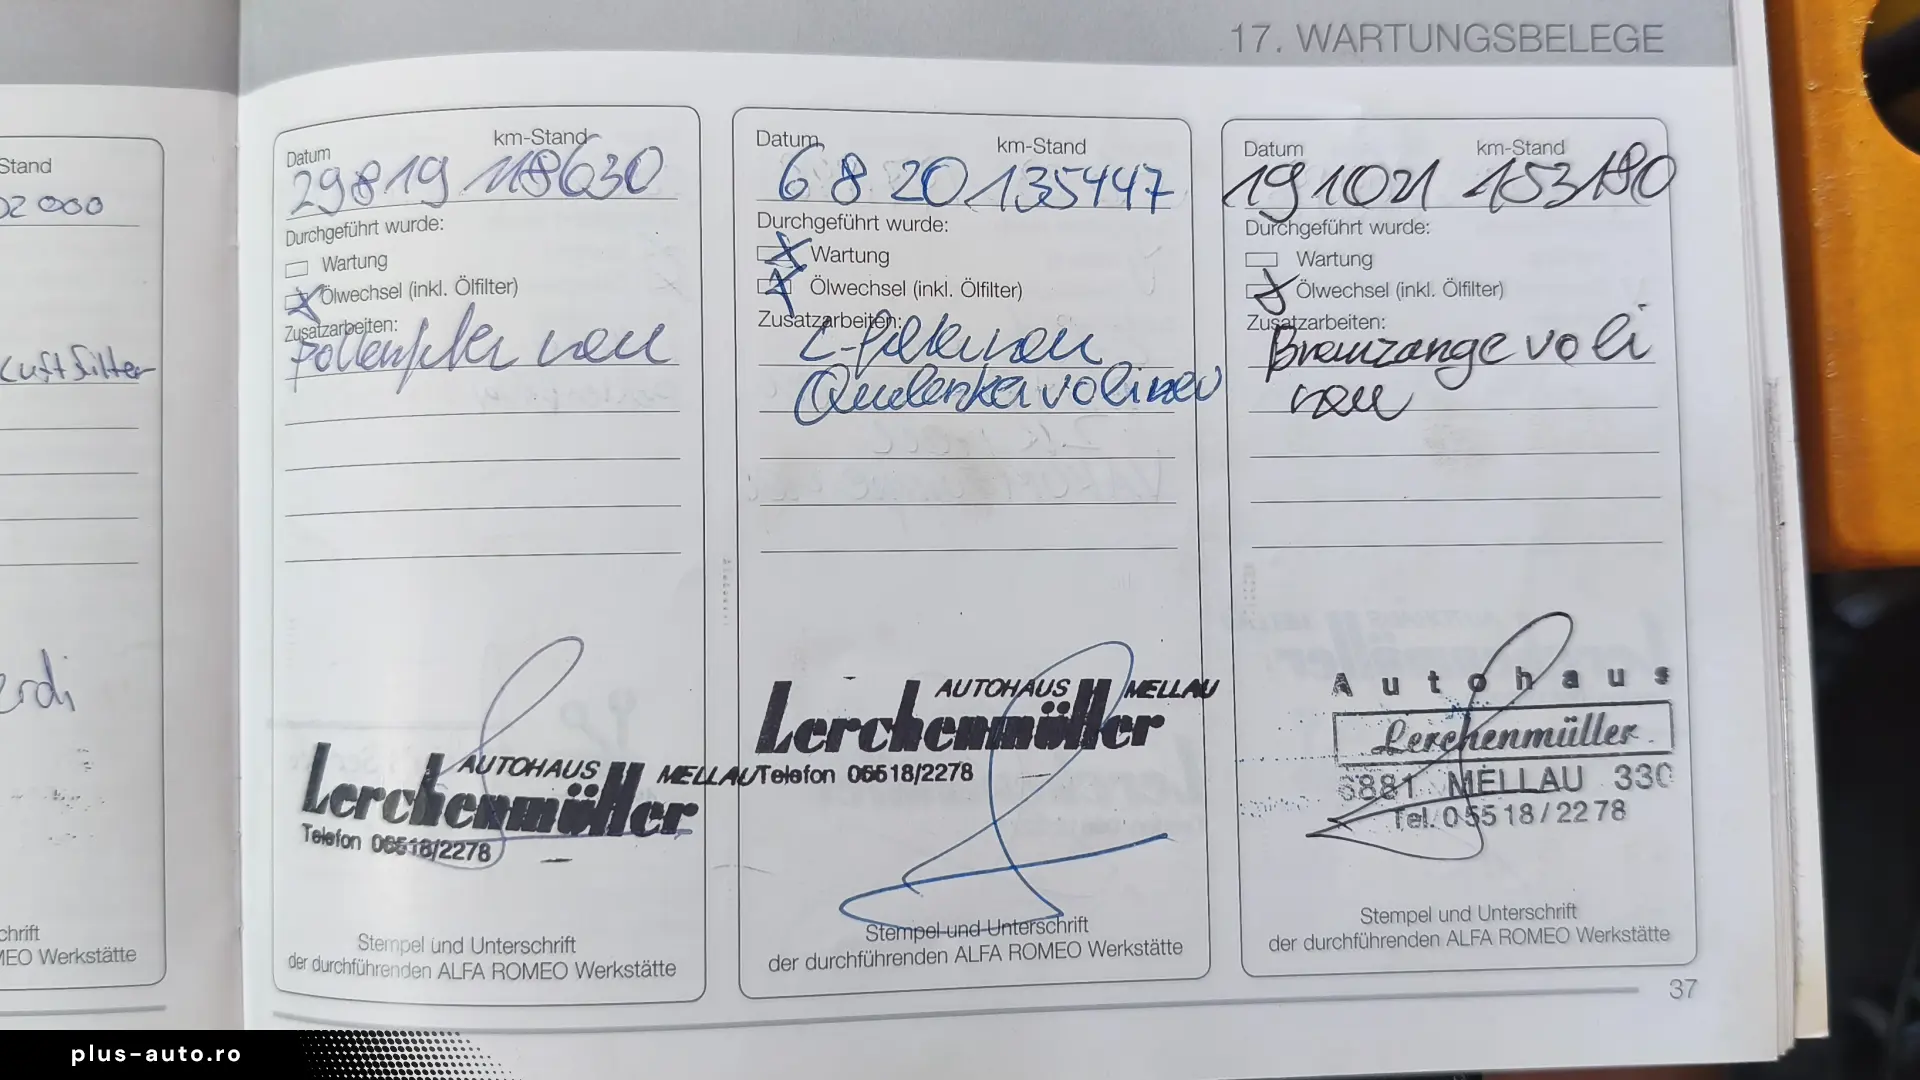 17. WARTUNGSBELEGE
Stand
02 000
Luftfilter
chrift
MEO Werkstätte
Datum km-Stand
29 8 19 118630
Durchgeführt wurde:
Wartung
Ölwechsel (inkl. Ölfilter)
Zusatzarbeiten:
Pollenfilter neu
AUTOHAUS MELLAU
Lerchenmüller
Telefon 05518/2278
Stempel und Unterschrift
der durchführenden ALFA ROMEO Werkstätte
Datum km-Stand
6 8 20 135447
Durchgeführt wurde:
Wartung
Ölwechsel (inkl. Ölfilter)
Zusatzarbeiten:
L-Filter neu
Querlenker vo li neu
AUTOHAUS MELLAU
Lerchenmüller
Telefon 05518/2278
Stempel und Unterschrift
der durchführenden ALFA ROMEO Werkstätte
Datum km-Stand
19 10 21 153190
Durchgeführt wurde:
Wartung
Ölwechsel (inkl. Ölfilter)
Zusatzarbeiten:
Bremzange vo li
neu
Autohaus
Lerchenmüller
6881 MELLAU 330
Tel. 05518/2278
Stempel und Unterschrift
der durchführenden ALFA ROMEO Werkstätte
37
plus-auto.ro